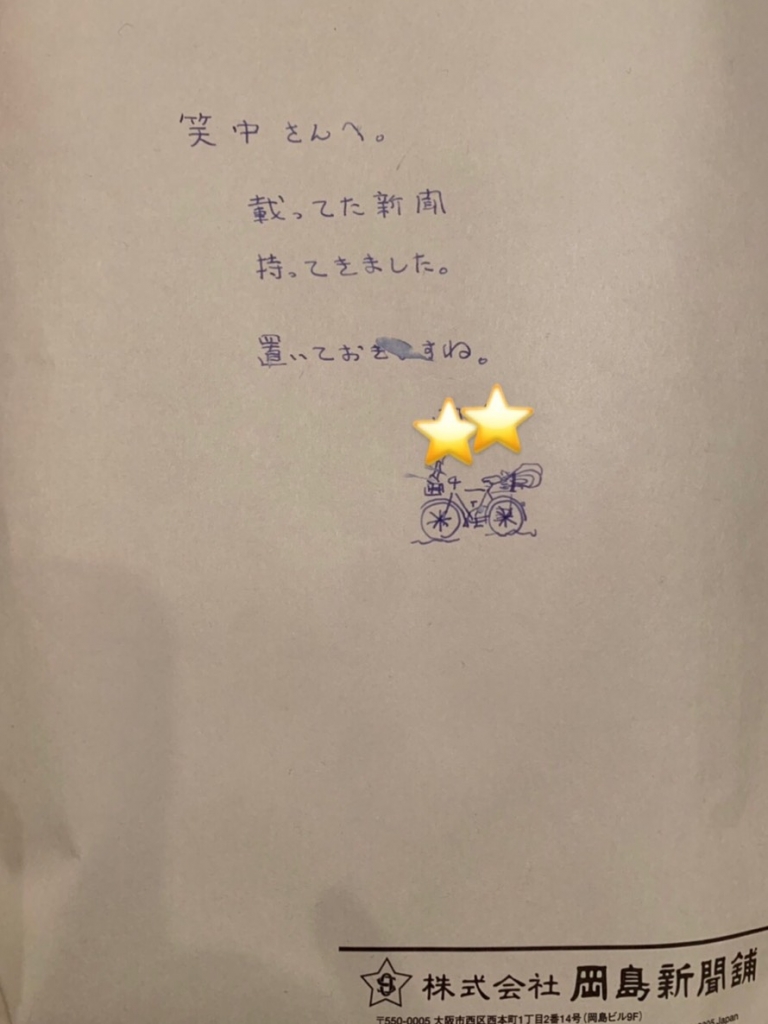 笑中さんへ。
載ってた新聞
持ってきました。
置いておきますね。
株式会社 岡島新聞舗
〒550-0005 大阪市西区西本町1丁目2番14号(岡島ビル9F)
Japan